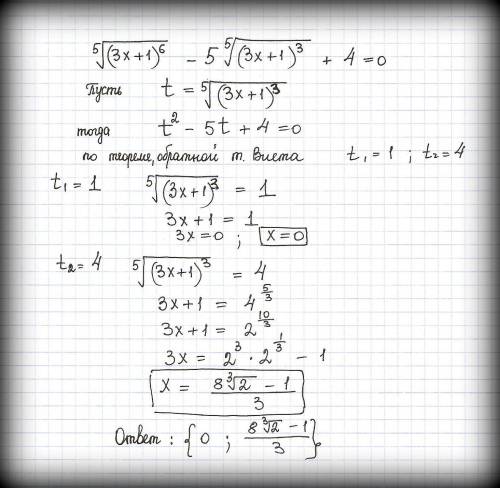 ⁵√(3x+1)⁶ − 5 ⁵√(3x+1)³ + 4 = 0
Пусть t = ⁵√(3x+1)³
тогда t² − 5t + 4 = 0
по теореме, обратной т. Виета t₁ = 1 ; t₂ = 4
t₁ = 1 ⁵√(3x+1)³ = 1
3x+1 = 1
3x = 0 ; x = 0
t₂ = 4 ⁵√(3x+1)³ = 4
3x+1 = 4^(5/3)
3x+1 = 2^(10/3)
3x = 2³ · 2^(1/3) − 1
x = (8∛2 − 1)/3
Ответ : {0 ; (8∛2 − 1)/3}.